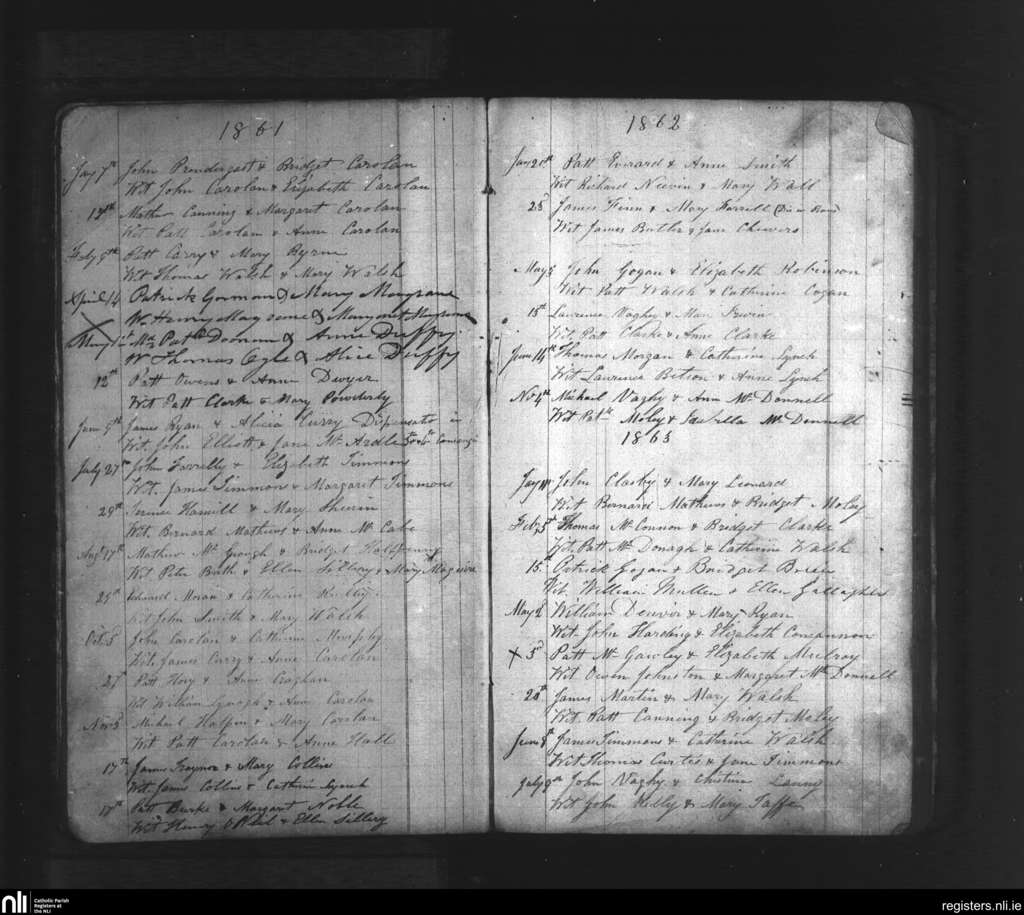 1861
Jay 7th John Prendergast & Bridget Carolan
Wit John Carolan & Elizabeth Carolan
14th Mathw Canning & Margaret Carolan
Wit Patt Carolan & Anne Carolan
Feby 5th Patt Carry & Mary Byrne
Wit Thomas Walsh & Mary Walsh
April 14 Patrick Gorman & Mary Magrane
W Henry Magrane & Margaret Magrane
May Patk Doonan & Anne Duffy
W Thomas Cogle & Alice Duffy
12th Patt Owens & Anne Dwyer
Wit Patt Clarke & Mary Powderly
June 9th James Ryan & Alicia Curry Dispensatis in
Wit. John Elliott & Jane Mc Ardle
July 27th John Farrelly & Elizabeth Timmons
Wit. James Timmons & Margaret Timmons
29th Terence Hamill & Mary
Wit. Bernard Mathews & Anne Mc Cabe
Augt 17th Mathew Mc Gough & Bridget Halfpenny
Wit Peter & Ellen Sillery & Mary Maguire
25th Edward Moran & Catherine
Wit John Smith & Mary Walsh
Oct. 5 John Carolan & Catherine Murphy
Wit. James Curry & Anne Carolan
27 Patt Hoey & Anne Craghan
Wit William & Anne Carolan
Nov 3 Michael Halpin & Mary Carolan
Wit Patt Carolan & Anne Hall
17th James Traynor & Mary Collins
Wit. James Collins & Catherine Lynch
17th Patt Burke & Margaret Noble
Wit Henry & Ellen Sillery
1862
Jay 20th Patt Everard & Anne Smith
Wit Richard Nievin & Mary Wall
25 James Finn & Mary Farrell
Wit James Butler & Jane Chevers
May 5 John Gogan & Elizabeth Robinson
Wit Patt Walsh & Catherine Cogan
15th Laurence Vaghy & Mary
Wit. Patt Clarke & Anne Clarke
June 14th Thomas Morgan & Catherine Lynch
Wit Laurence Betson & Anne Lynch
Nov 4th Michael Vaghy & Ann Mc Donnell
Wit Patk Moley & Isabella Mc Donnell
1863
Jay John Clasby & Mary Leonard
Wit Bernard Mathews & Bridget Moley
Feby 5th Thomas Mc Connon & Bridget Clarke
Wit. Patt Mc Donagh & Catherine Walsh
15th Patrick Gogan & Bridget Breen
Wit. William Mullen & Ellen Gallagher
May 2 William Denvir & Mary Ryan
Wit. John Harding & Elizabeth Concannon
3d Patt Mc Gawley & Elizabeth Mulroy
Wit Owen Johnston & Margaret Mc Donnell
20th James Martin & Mary Walsh
Wit. Patt Canning & Bridget Moley
June 8th James Timmons & Catherine Walsh
Wit Thomas Curtis & Jane Timmons
July 9th John Vaghy & Christina
Wit John Kelly & Mary Taffe
nli
Catholic Parish
Registers at
the NLI
registers.nli.ie